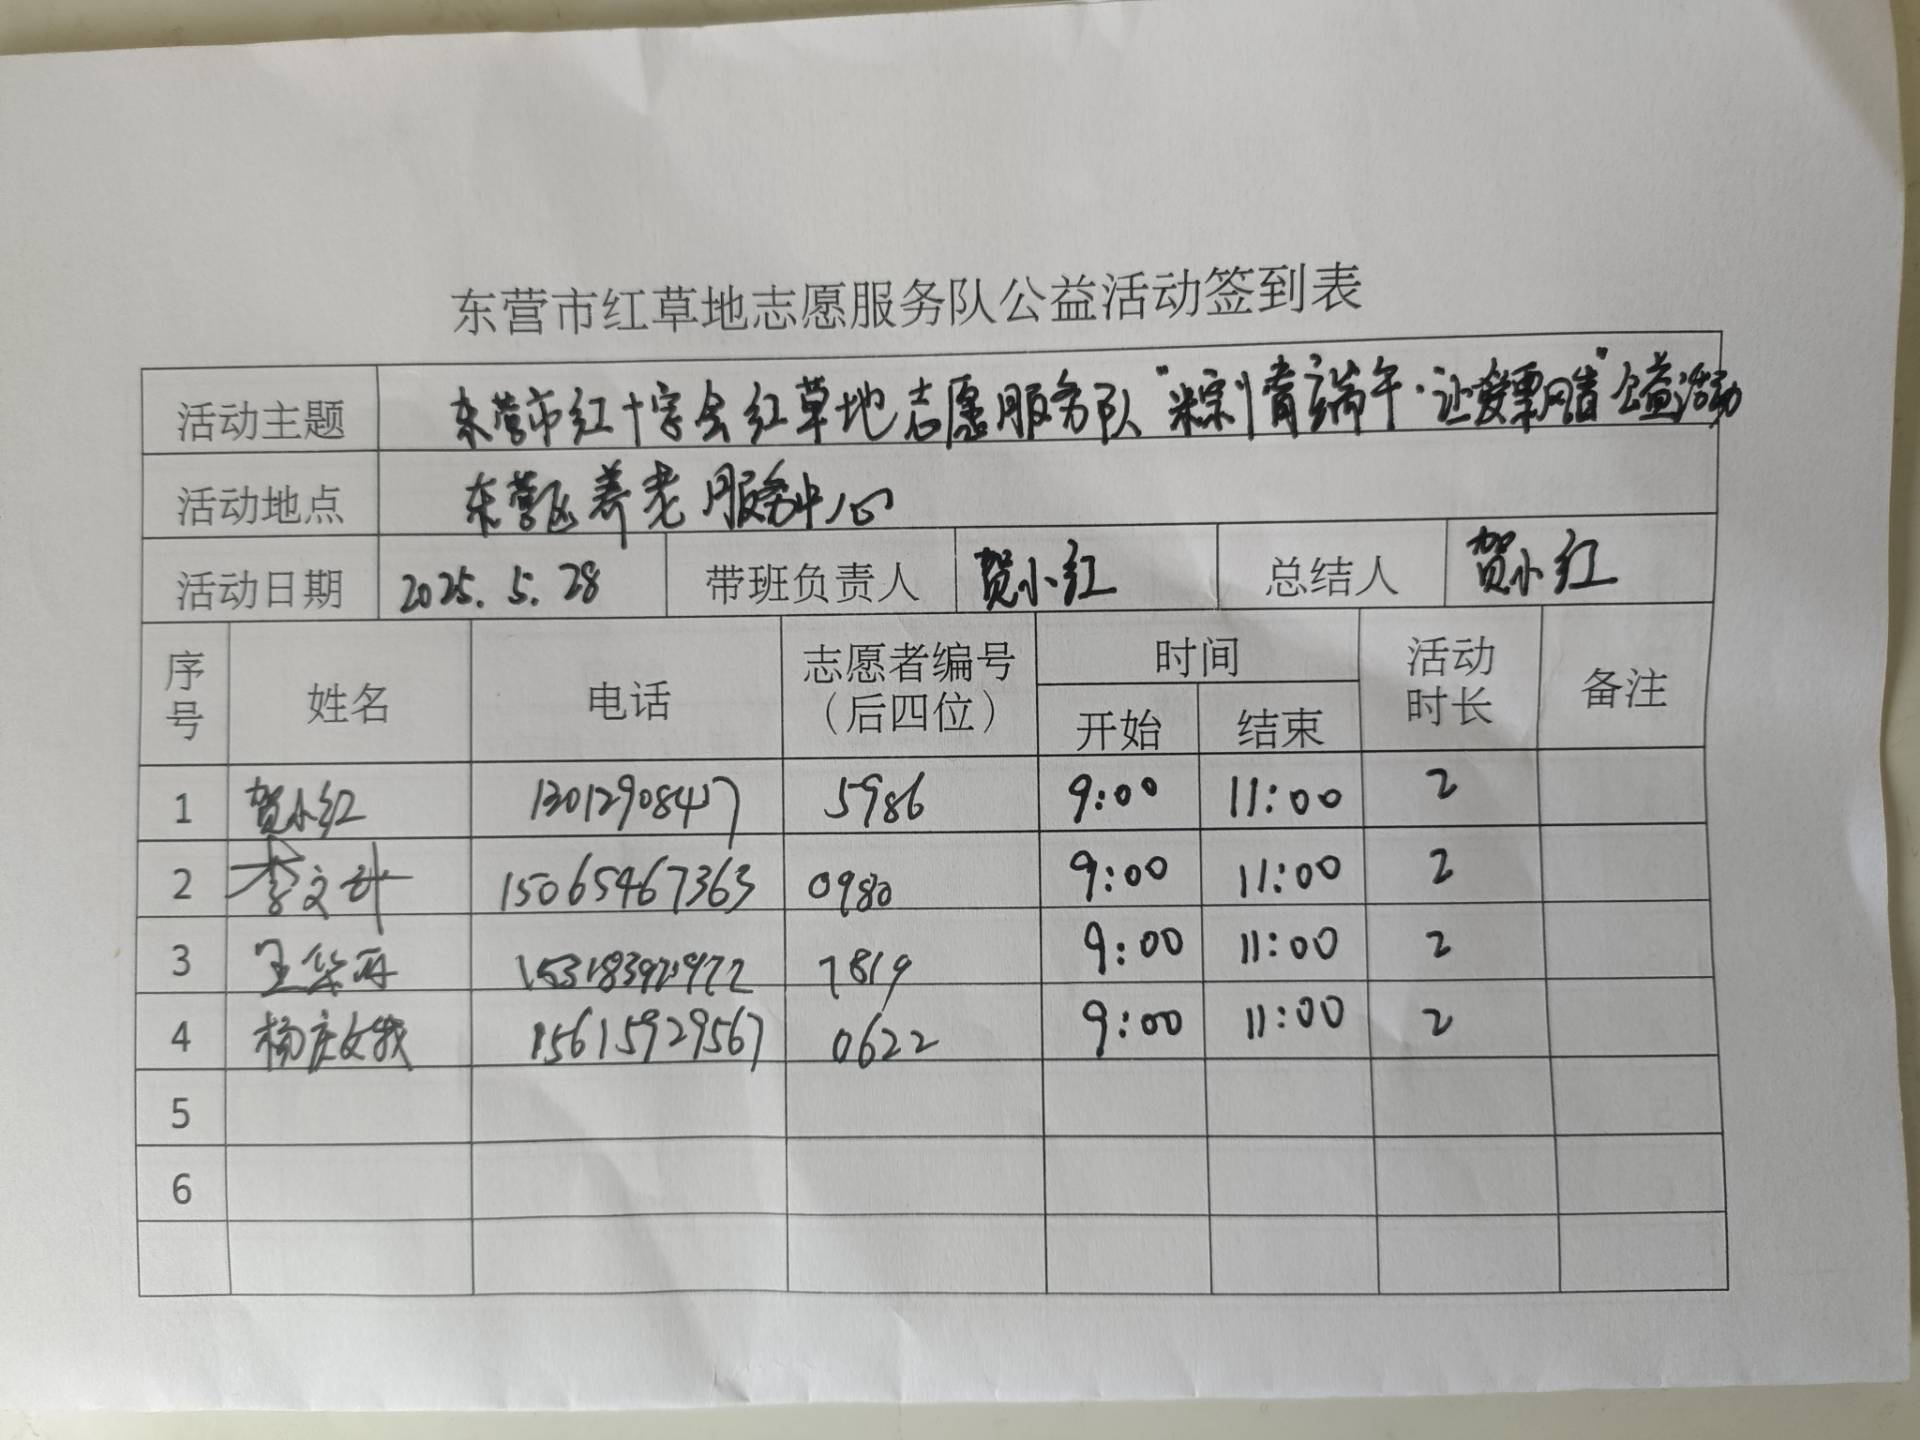 东营市红草地志愿服务队公益活动签到表
活动主题 东营市红十字会红草地志愿服务队“粽情端午·让爱飘香”公益活动
活动地点 东营区养老服务中心
活动日期 2025.5.28 带班负责人 贺小红 总结人 贺小红
序号 姓名 电话 志愿者编号（后四位） 时间 活动时长 备注
开始 结束
1 贺小红 13012908417 5986 9:00 11:00 2
2 李文升 15065467363 0980 9:00 11:00 2
3 王 7819 9:00 11:00 2
4 杨庆娥 15615929567 0622 9:00 11:00 2
5
6